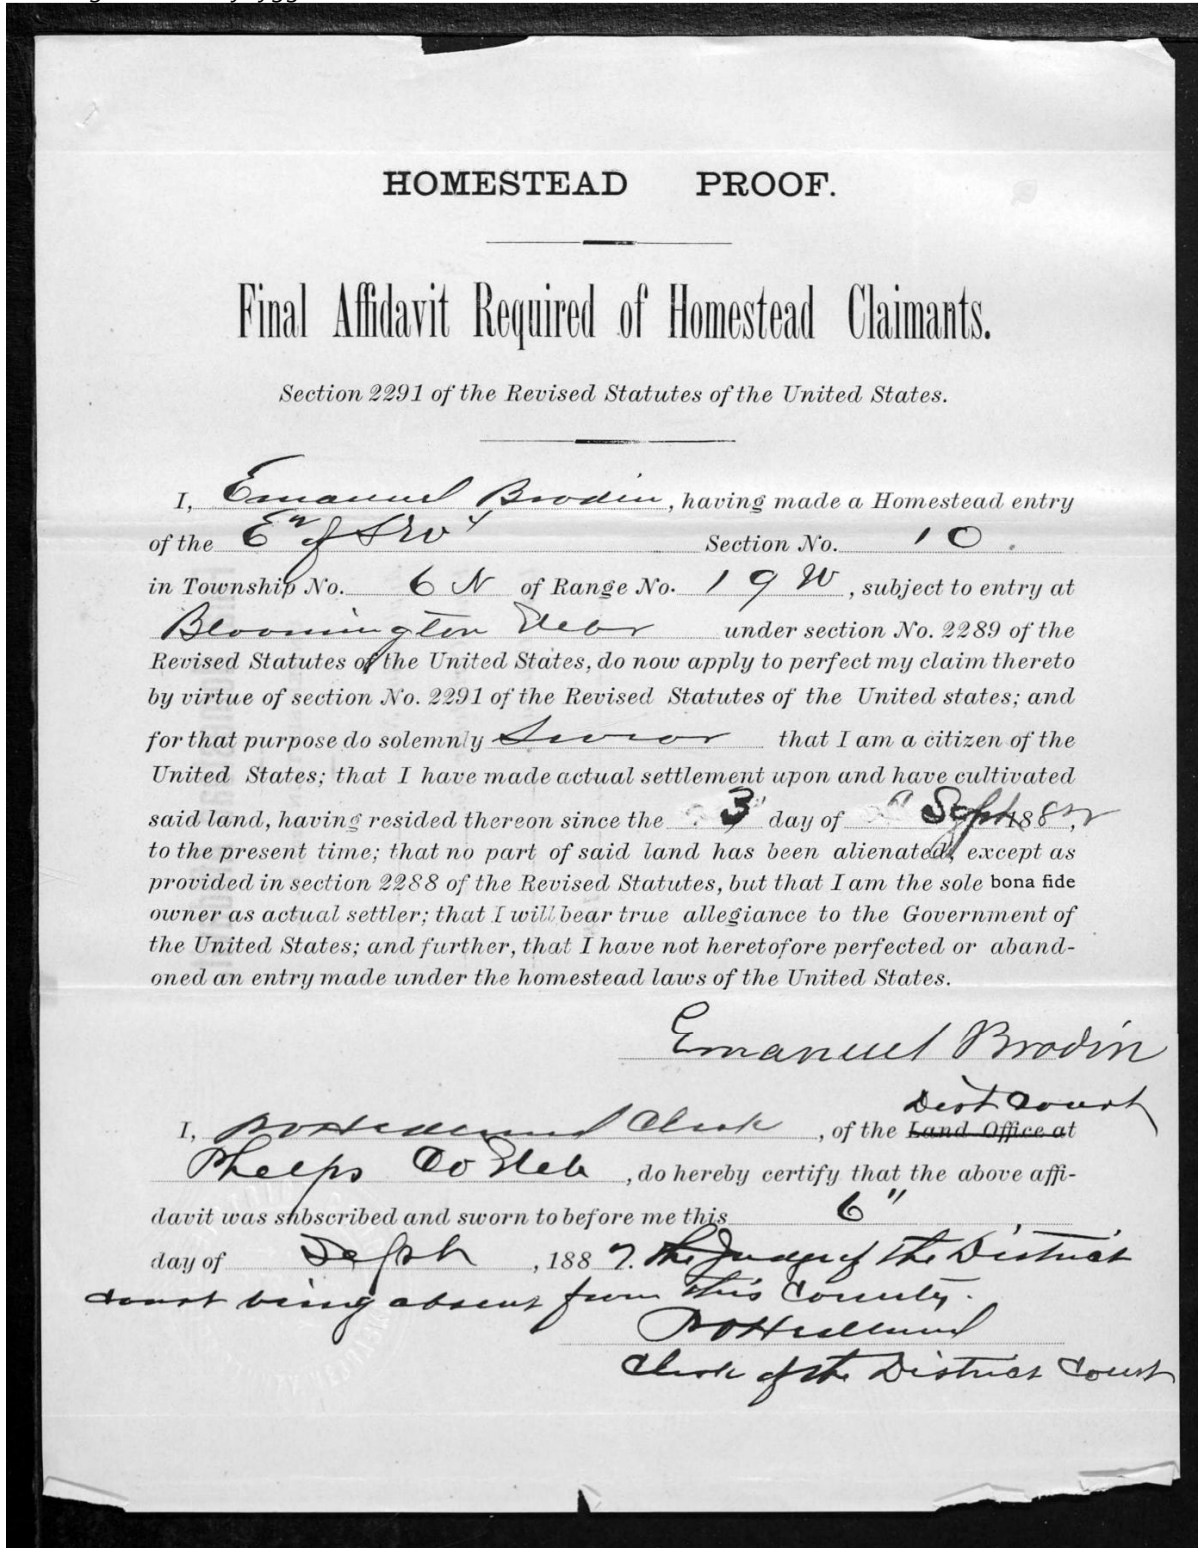 HOMESTEAD PROOF.
Final Affidavit Required of Homestead Claimants.
Section 2291 of the Revised Statutes of the United States.
I, Emanuel Brodin, having made a Homestead entry
of the E" of SW 4 Section No. 10.
in Township No. 6 N of Range No. 19 W, subject to entry at
Bloomington Nebr under section No. 2289 of the
Revised Statutes of the United States, do now apply to perfect my claim thereto
by virtue of section No. 2291 of the Revised Statutes of the United states; and
for that purpose do solemnly Swear that I am a citizen of the
United States; that I have made actual settlement upon and have cultivated
said land, having resided thereon since the 3" day of Sept 1882,
to the present time; that no part of said land has been alienated, except as
provided in section 2288 of the Revised Statutes, but that I am the sole bona fide
owner as actual settler; that I will bear true allegiance to the Government of
the United States; and further, that I have not heretofore perfected or aband-
oned an entry made under the homestead laws of the United States.
Emanuel Brodin
Dist Court
I, Hedlund Clerk, of the Land Office at
Phelps Co Neb, do hereby certify that the above affi-
davit was subscribed and sworn to before me this 6"
day of Sept, 1887. the Judge of the District
Court being absent from this County.
Hedlund
Clerk of the District Court